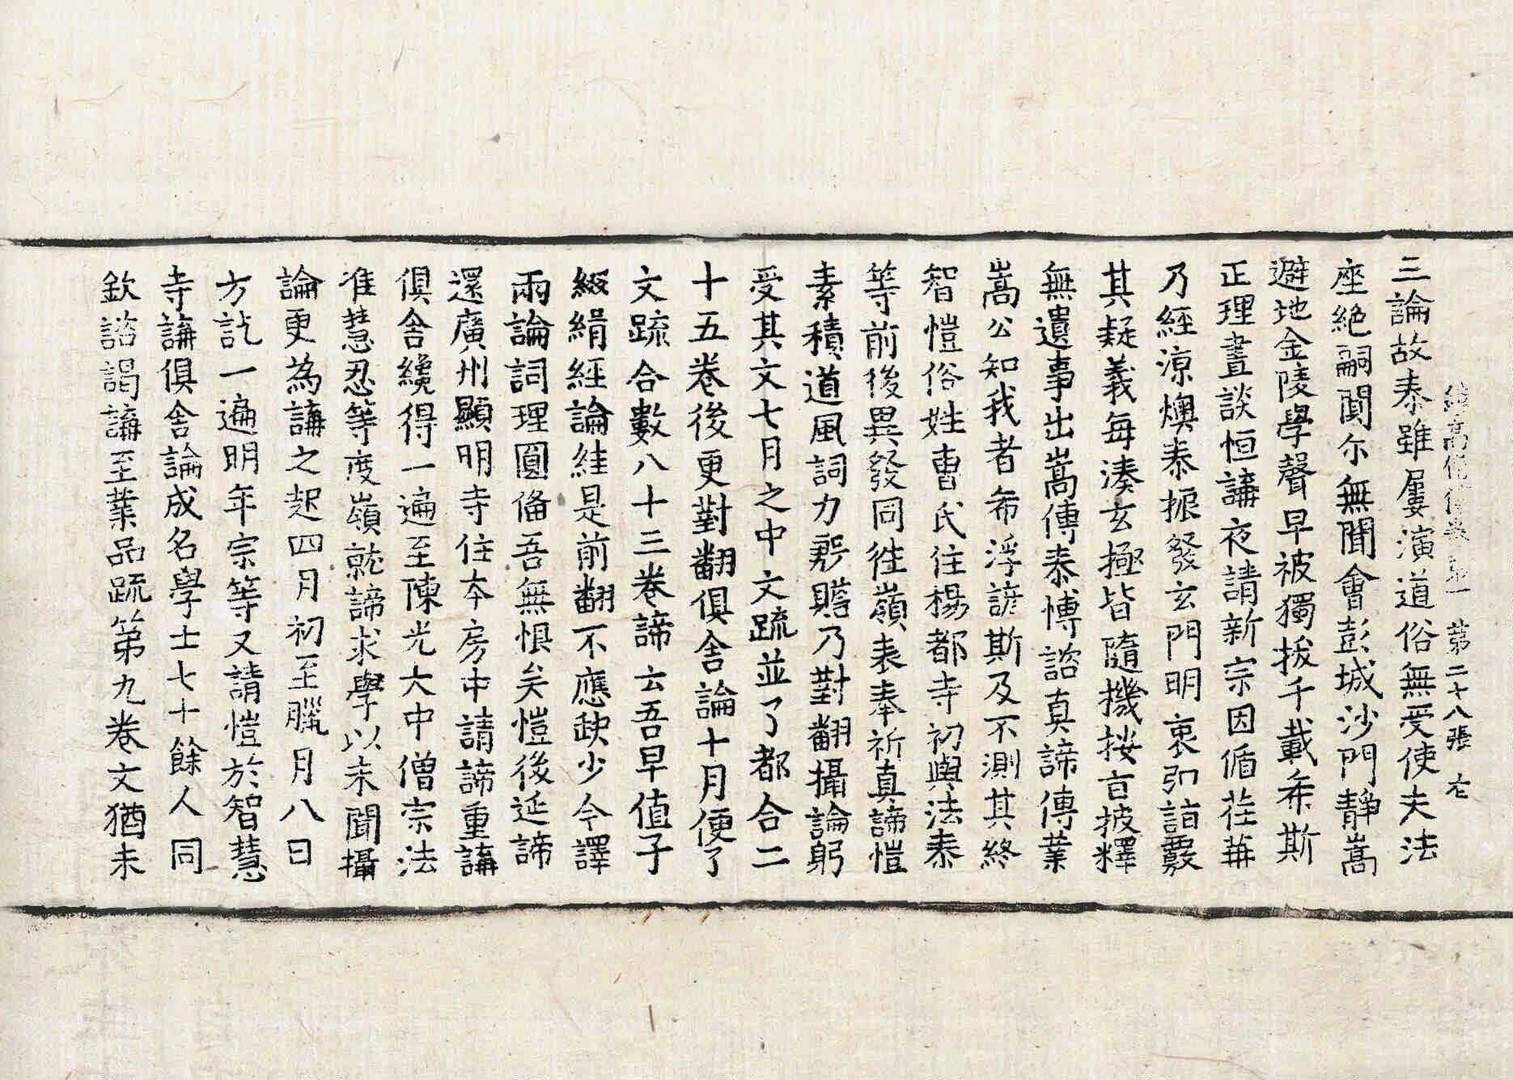 續高僧傳卷第一 第二十八張 左
三論故泰雖屢演道俗無受使夫法
座絕嗣聞尒無聞會彭城沙門靜嵩
避地金陵學聲早被獨拔千載希斯
正理晝談恒講夜請新宗因循荏苒
乃經涼燠泰振發玄門明衷弘詣覈
其疑義每湊玄極皆隨機按旨披釋
無遺事出嵩傳泰博諮真諦傳業
嵩公知我者希浮諺斯及不測其終
智愷俗姓曹氏住楊都寺初與法泰
等前後異發同徃嶺表奉祈真諦愷
素積道風詞力殷贍乃對翻攝論躬
受其文七月之中文疏並了都合二
十五卷後更對翻俱舍論十月便了
文疏合數八十三卷諦云吾早值子
綴緝經論絓是前翻不應缺少今譯
兩論詞理圓俻吾無恨矣愷後延諦
還廣州顯明寺住本房中請諦重講
俱舍纔得一遍至陳光大中僧宗法
准慧忍等度嶺就諦求學以未聞攝
論更為講之起四月初至臘月八日
方訖一遍明年宗等又請愷於智慧
寺講俱舍論成名學士七十餘人同
欽諮謁講至業品疏第九卷文猶未